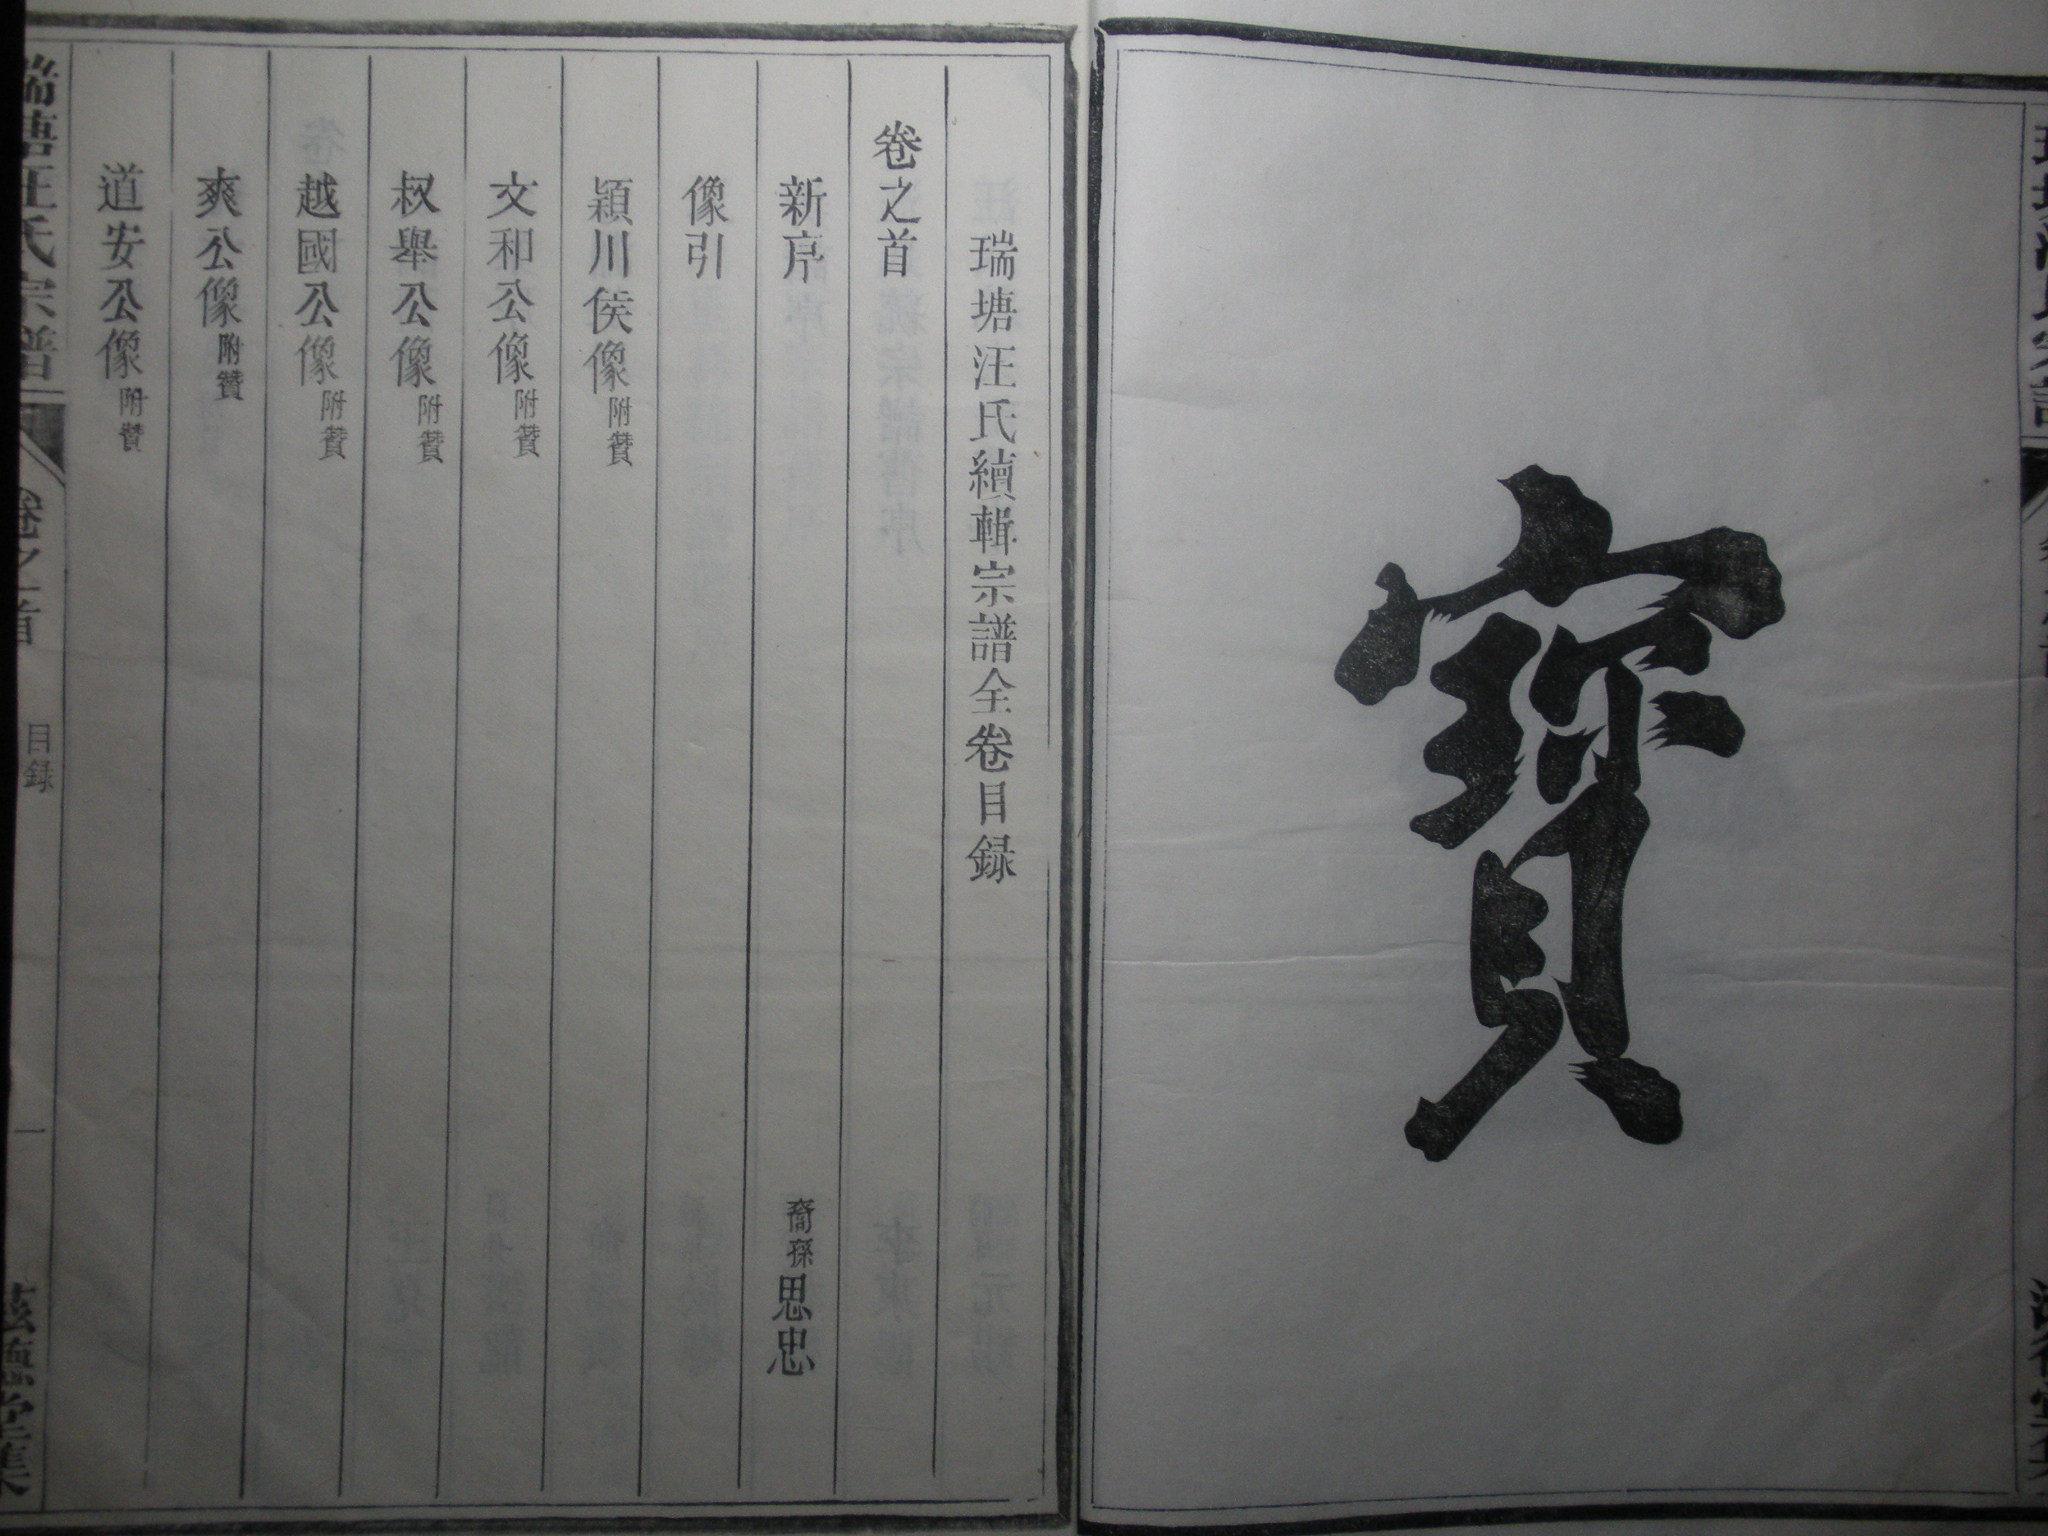 寳
瑞塘汪氏續輯宗譜全卷目録
卷之首
新序 裔孫思忠
像引
穎川侯像附贊
文和公像附贊
叔舉公像附贊
越國公像附贊
爽公像附贊
道安公像附贊
瑞塘汪氏宗譜 卷之首 目録 一